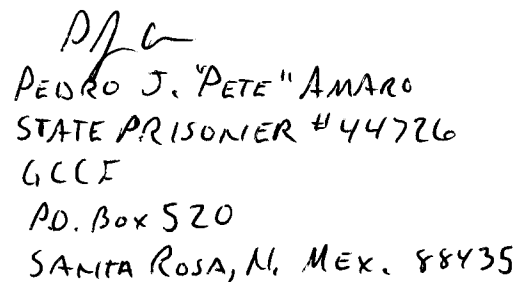 PEDRO J. "PETE" AMARO
STATE PRISONER #44726
GCCF
P.O. BOX 520
SANTA ROSA, N. MEX. 88435